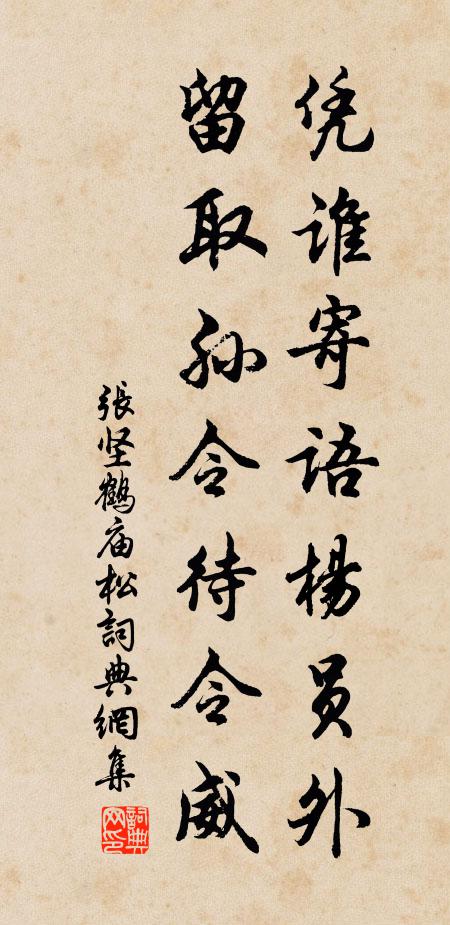 凭谁寄语杨员外
留取孙令待令威
張坚鶴庙松詞典網集
詞典网印